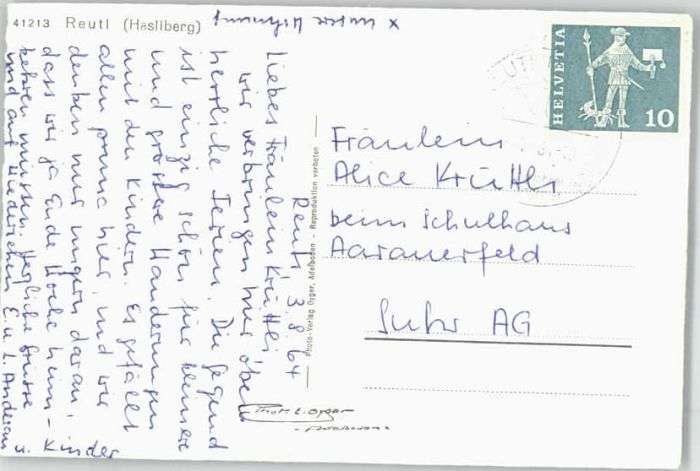 41213 Reuti (Hasliberg)
x unser Wohnung
Reuti 3.8.64
Liebes Fräulein Krüttli
wir verbringen hier oben
herrliche Ferien. Die Gegend
ist einzig schön für kleinere
und grössere Wanderungen
mit den Kindern. Es gefällt
allen prima hier, und wir
denken nur ungern daran,
dass wir ja Ende Woche heim-
kehren müssen. Herzliche Grüsse
und auf Wiedersehen E. u. L.
u. Kinder
Photo-Verlag Gyger, Adelboden - Reproduktion verboten
Photo E. Gyger
- Adelboden -
HELVETIA
10
Fräulein
Alice Krüttli
beim Schulhaus
Aarauerfeld
Suhr AG